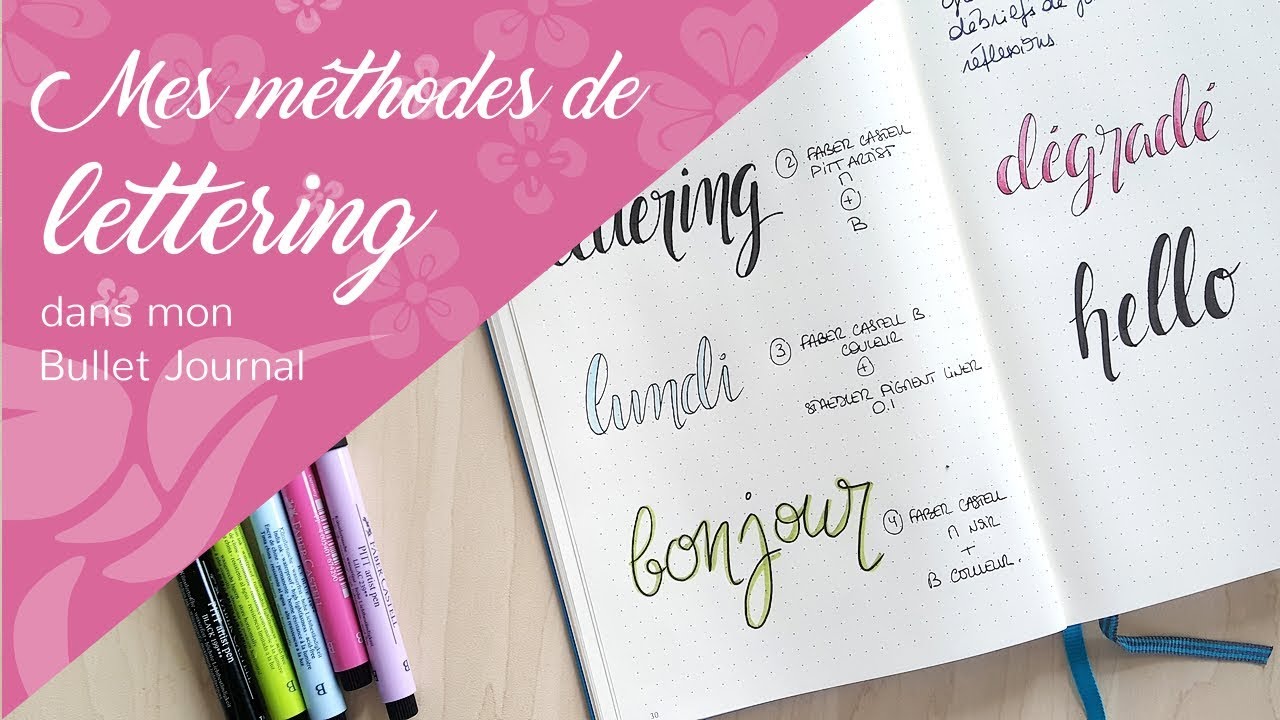 Mes méthodes de
lettering
dans mon
Bullet Journal
2 FABER CASTELL
PITT ARTIST
n
+
B
lundi
3 FABER CASTELL B
COULEUR
+
STAEDLER PIGMENT LINER
0.1
bonjour
4 FABER CASTELL
n NOIR
+
B COULEUR.
30
débriefs de
réflexions
dégradé
hello
PITT artist pen
BLACK 199
B
B
FABER CASTELL
B
FABER-CASTELL
PITT artist pen
B